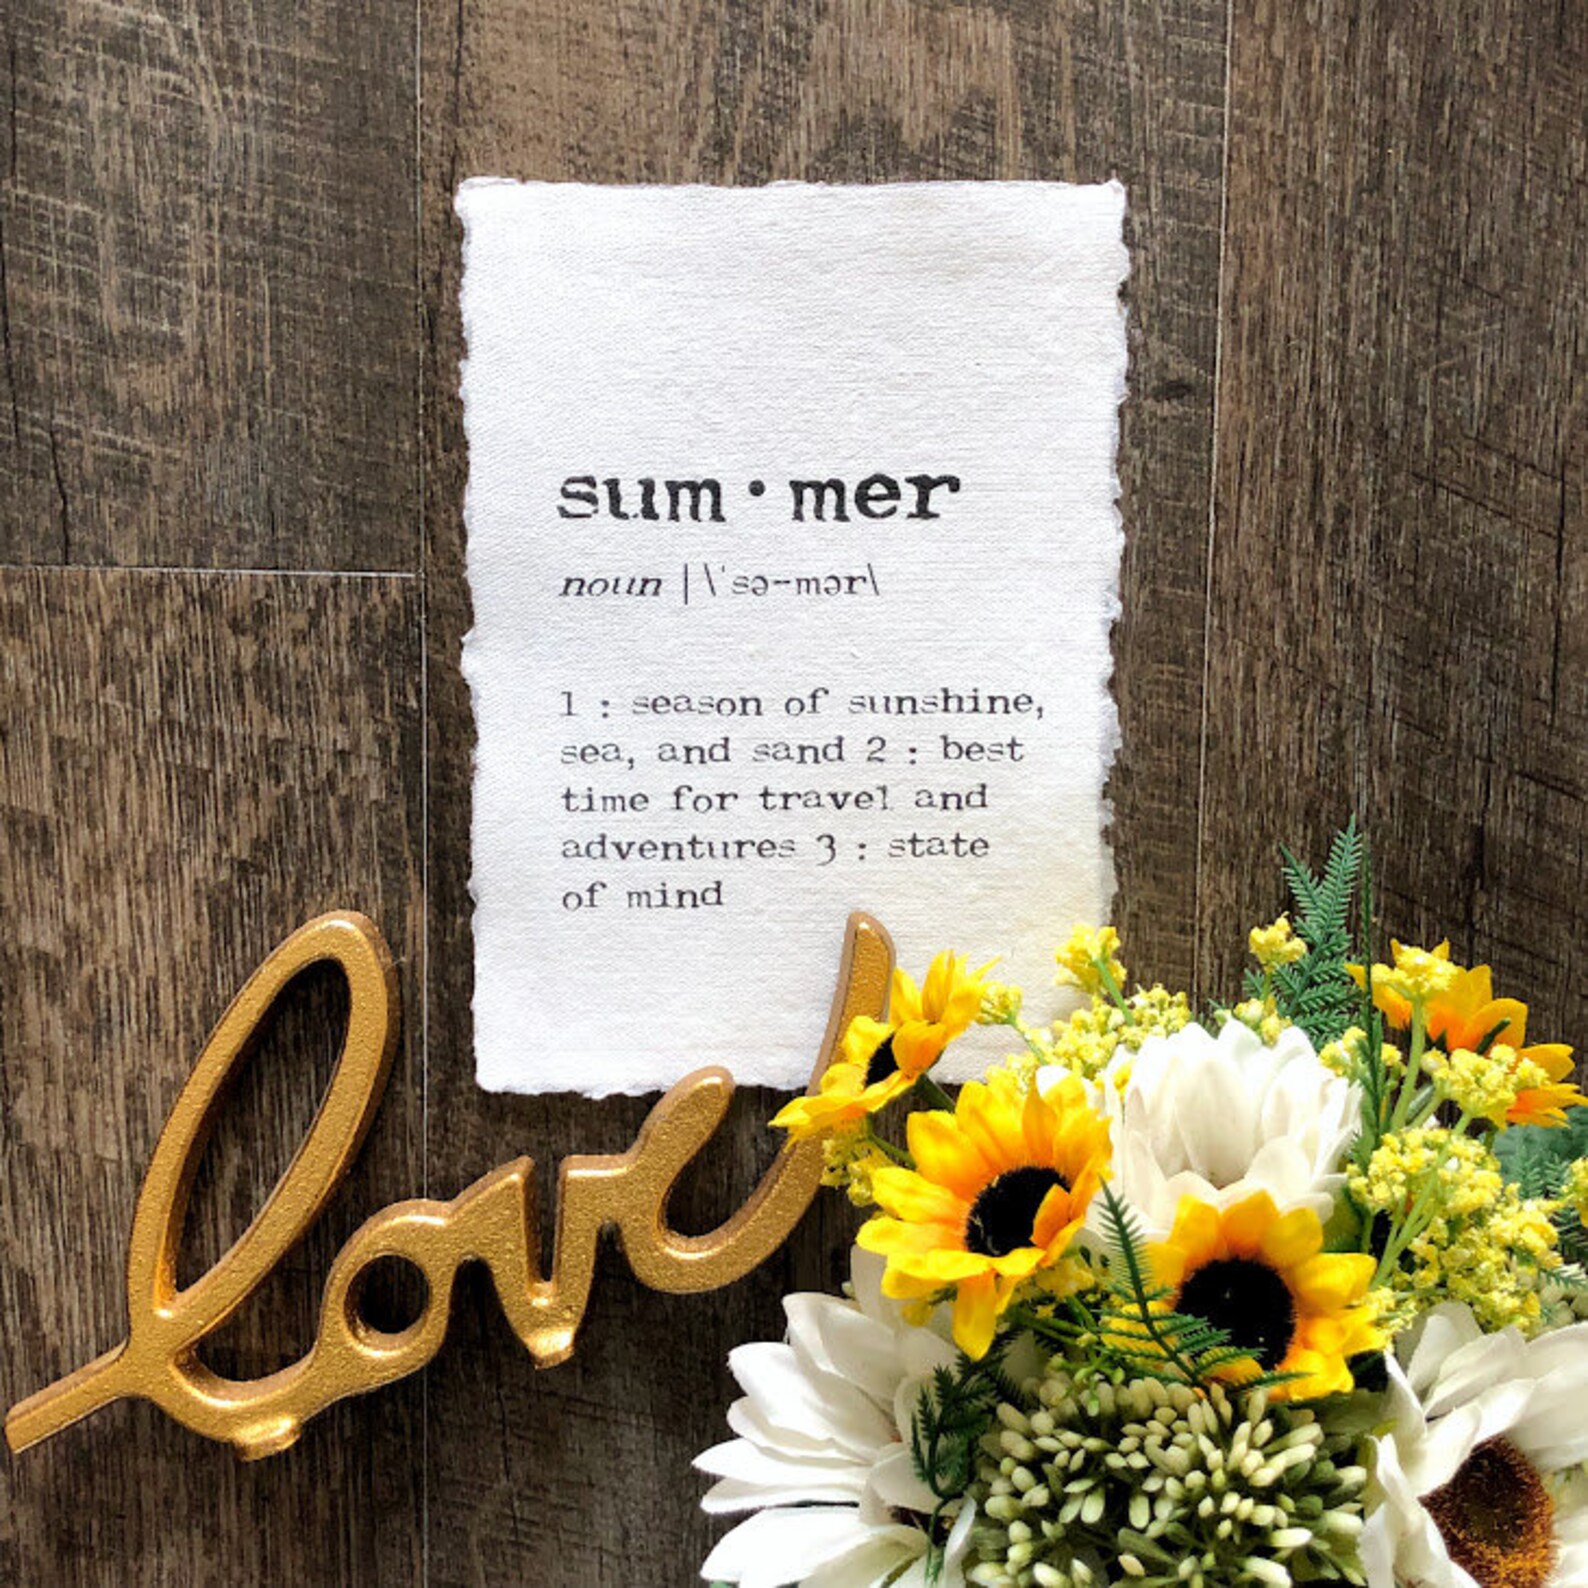 sum•mer
noun | \ˈsə-mər\
1 : season of sunshine,
sea, and sand 2 : best
time for travel and
adventures 3 : state
of mind
love